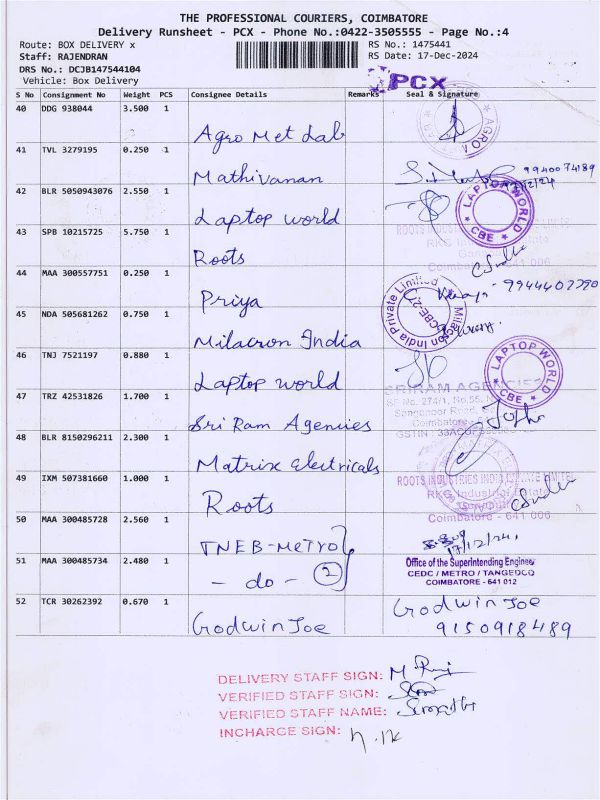 THE PROFESSIONAL COURIERS, COIMBATORE
Delivery Runsheet - PCX - Phone No.:0422-3505555 - Page No.:4
Route: BOX DELIVERY x
RS No.: 1475441
Staff: RAJENDRAN
RS Date: 17-Dec-2024
DRS No.: DCJB147544104
Vehicle: Box Delivery
PCX
S No Consignment No Weight PCS Consignee Details Remarks Seal & Signature
40 DDG 938044 3.500 1 Agro Met Lab
41 TVL 3279195 0.250 1 Mathivanan 9940074189
17/12/24
42 BLR 5050943076 2.550 1 Laptop world LAPTOP WORLD CBE
43 SPB 10215725 5.750 1 Roots
Coimbatore - 641 006
44 MAA 300557751 0.250 1 Priya
45 NDA 505681262 0.750 1 Milacron India Milacron India Private Limited
46 TNJ 7521197 0.880 1 Laptop world LAPTOP WORLD CBE
47 TRZ 42531826 1.700 1 Sri Ram Agencies SRIRAM AGENCIES
48 BLR 8150296211 2.300 1 Matrix Electricals
49 IXM 507381660 1.000 1 Roots ROOTS INDUSTRIES INDIA PRIVATE LIMITED
RKG Industrial Estate
Coimbatore - 641 006
50 MAA 300485728 2.560 1 TNEB-METRO
17/12/24
51 MAA 300485734 2.480 1 - do - 2
Office of the Superintending Engineer
CEDC / METRO / TANGEDCO
COIMBATORE - 641 012
52 TCR 30262392 0.670 1 Godwin Joe Godwin Joe
9150918489
DELIVERY STAFF SIGN:
VERIFIED STAFF SIGN:
VERIFIED STAFF NAME:
INCHARGE SIGN: